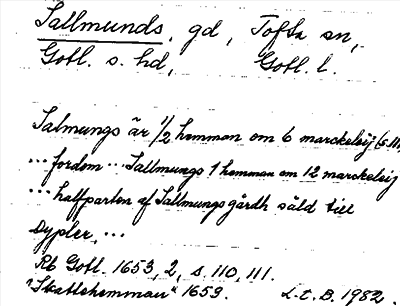 Sallmunds, gd, Tofta sn,
Gotl. s. hd, Gotl. l.
Salmungs är 1/2 hemman om 6 marckeleij (s. 111)
... fordom ... Sallmungs 1 hemman om 12 marckeleij
... halfparten af Sallmungs gårdh såld till
Dypler, ...
Rb Gotl. 1653, 2, s. 110, 111.
"Skattehemman" 1653. L.E.B. 1982.